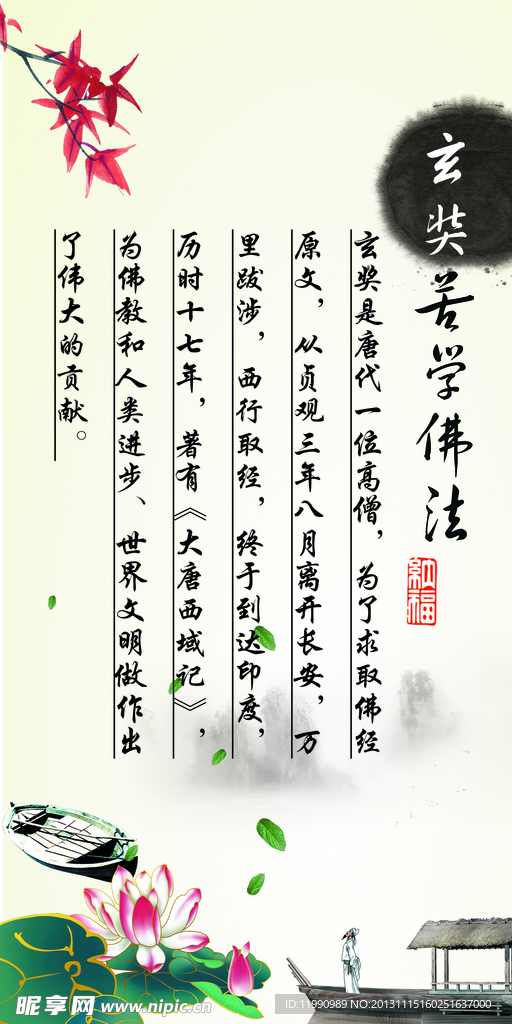 玄奘苦学佛法
納福
玄奘是唐代一位高僧，为了求取佛经
原文，从贞观三年八月离开长安，万
里跋涉，西行取经，终于到达印度，
历时十七年，著有《大唐西域记》，
为佛教和人类进步、世界文明做作出
了伟大的贡献。
昵享网 www.nipic.cn
ID:11990989 NO:20131115160251637000